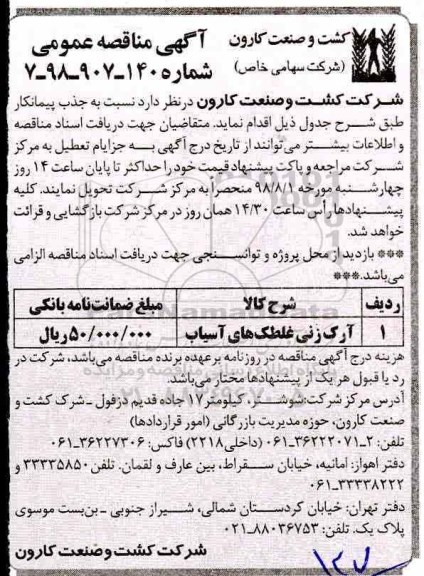 کشت و صنعت کارون
(شرکت سهامی خاص)
آگهی مناقصه عمومی
شماره ۱۴۰-۹۰۷-۹۸-۷
شرکت کشت و صنعت کارون در نظر دارد نسبت به جذب پیمانکار
طبق شرح جدول ذیل اقدام نماید. متقاضیان جهت دریافت اسناد مناقصه
و اطلاعات بیشتر می‌توانند از تاریخ درج آگهی به جز ایام تعطیل به مرکز
شرکت مراجعه و پاکت پیشنهاد قیمت خود را حداکثر تا پایان ساعت ۱۴ روز
چهارشنبه مورخه ۹۸/۸/۱ منحصراً به مرکز شرکت تحویل نمایند. کلیه
پیشنهادها رأس ساعت ۱۴/۳۰ همان روز در مرکز شرکت بازگشایی و قرائت
خواهد شد.
*** بازدید از محل پروژه و توانسنجی جهت دریافت اسناد مناقصه الزامی
می‌باشد.***
ردیف شرح کالا مبلغ ضمانت‌نامه بانکی
۱ آرک زنی غلطک‌های آسیاب ۵۰/۰۰۰/۰۰۰ ریال
هزینه درج آگهی مناقصه در روزنامه بر عهده برنده مناقصه می‌باشد، شرکت در
رد یا قبول هر یک از پیشنهادها مختار می‌باشد.
آدرس مرکز شرکت: شوشتر، کیلومتر ۱۷ جاده قدیم دزفول - شرک کشت و
صنعت کارون، حوزه مدیریت بازرگانی (امور قراردادها)
تلفن: ۲-۳۶۲۲۲۰۷۱-۰۶۱ (داخلی ۲۲۱۸) فاکس: ۳۶۲۲۷۳۰۶-۰۶۱
دفتر اهواز: امانیه، خیابان سقراط، بین عارف و لقمان. تلفن ۳۳۳۳۵۸۵۰ و
۳۳۳۳۸۲۲۲-۰۶۱
دفتر تهران: خیابان کردستان شمالی، شیراز جنوبی - بن‌بست موسوی
پلاک یک. تلفن: ۸۸۰۳۶۷۵۳-۰۲۱
شرکت کشت و صنعت کارون